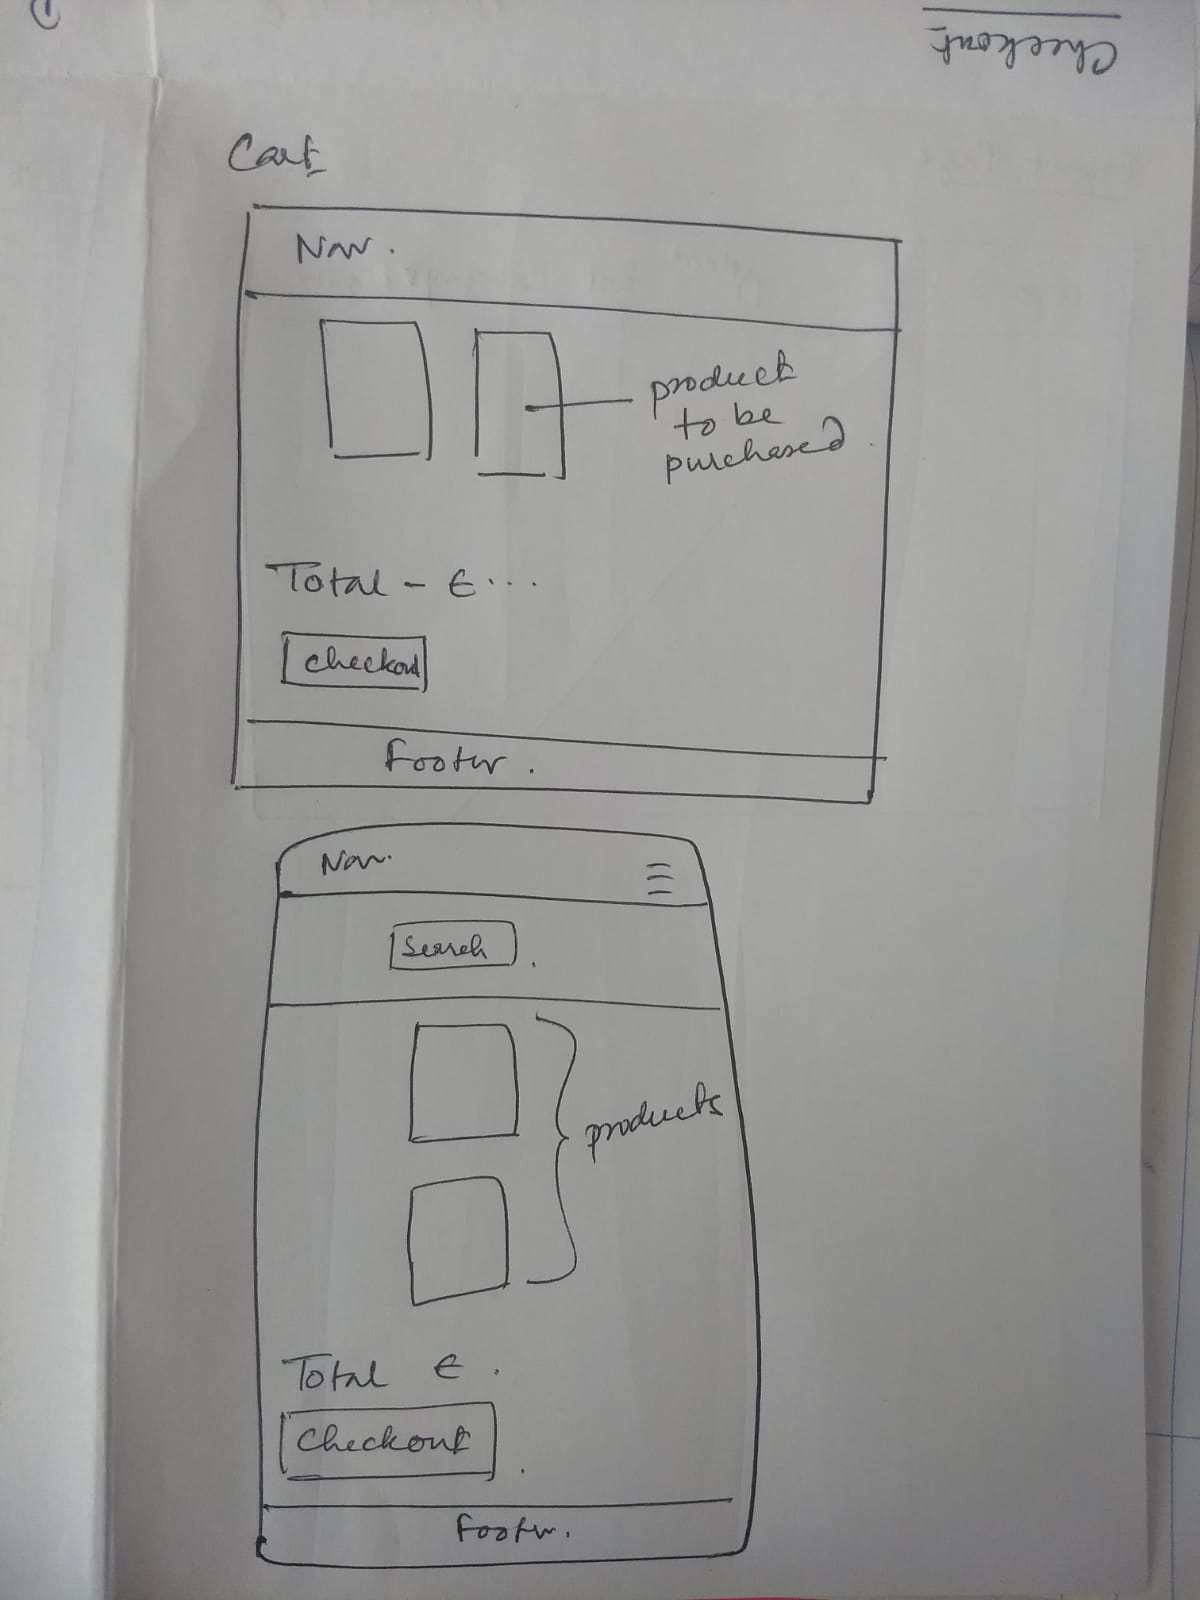 Checkout
Cart
Nav.
product
to be
purchased
Total - € ...
checkout
Footer.
Nav.
Search
products
Total €.
Checkout
Footer.